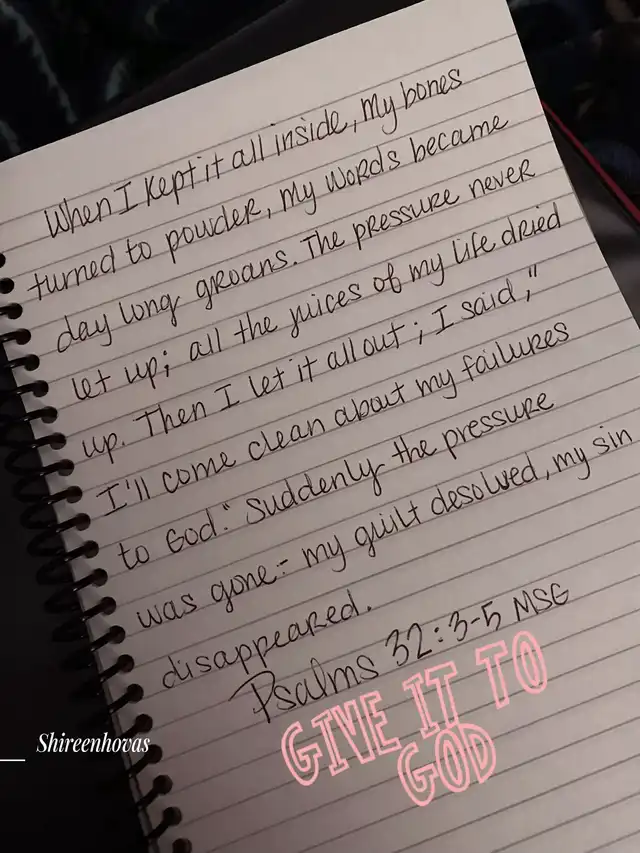 When I kept it all inside, my bones
turned to powder, my words became
day long groans. The pressure never
let up; all the juices of my life dried
up. Then I let it all out; I said,"
I'll come clean about my failures
to God." Suddenly the pressure
was gone- my guilt desolved, my sin
disappeared.
Psalms 32:3-5 MSG
GIVE IT TO
GOD
Shireenhovas